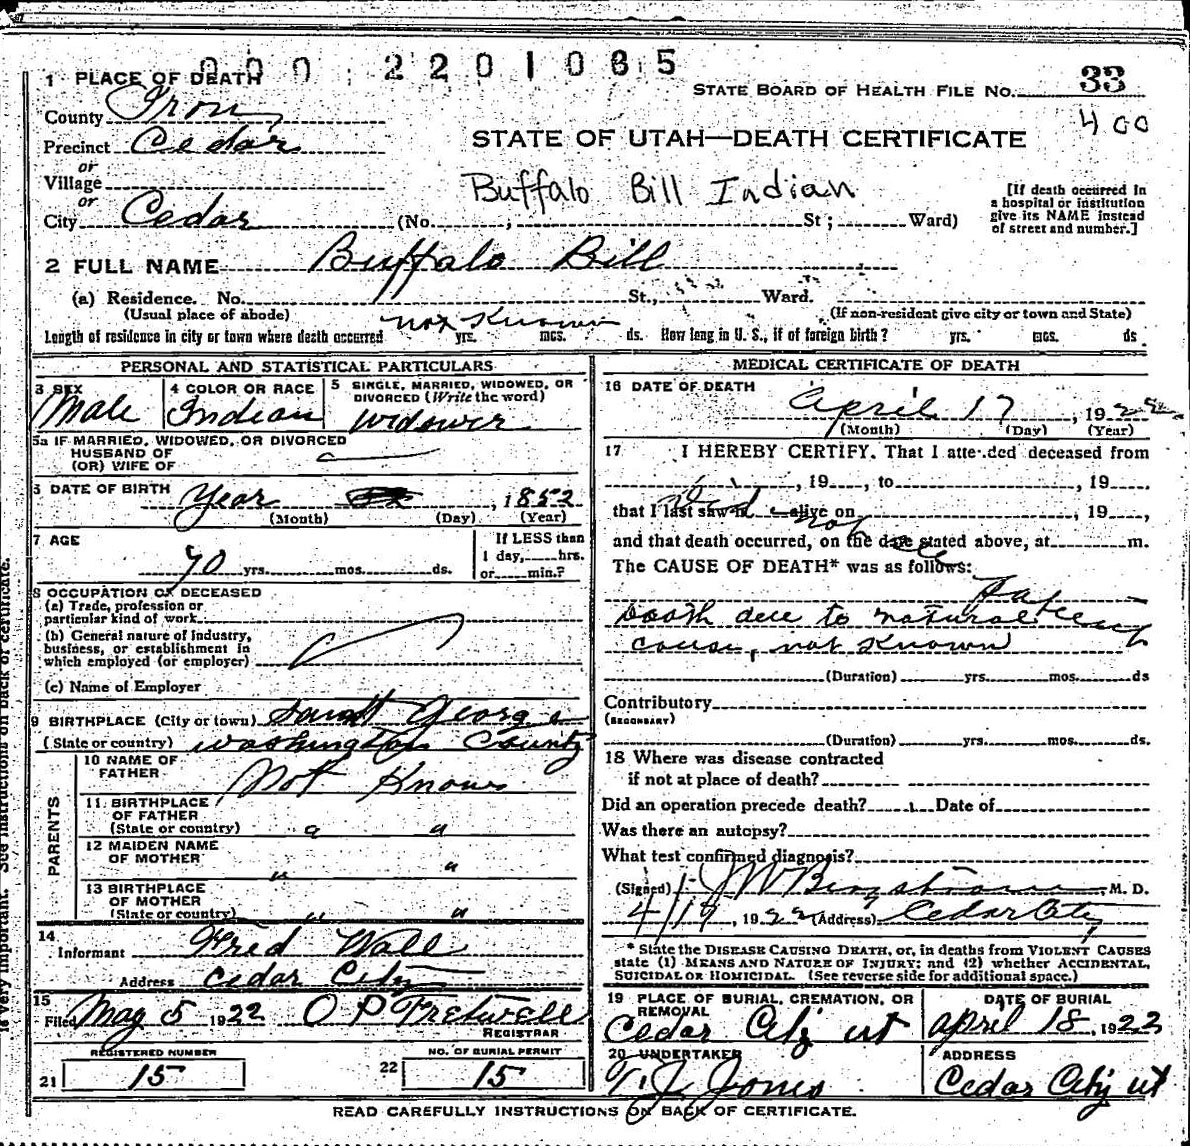 000 2201085
1 PLACE OF DEATH
STATE BOARD OF HEALTH FILE No. 33
County Iron
400
Precinct Cedar
STATE OF UTAH—DEATH CERTIFICATE
or
Village
Buffalo Bill Indian
or
City Cedar (No. ; St ; Ward)
[If death occurred in
a hospital or institution
give its NAME instead
of street and number.]
2 FULL NAME Buffalo Bill
(a) Residence. No. St., Ward.
(Usual place of abode) (If non-resident give city or town and State)
Length of residence in city or town where death occurred not Known yrs. mos. ds. How long in U. S., if of foreign birth? yrs. mos. ds.
PERSONAL AND STATISTICAL PARTICULARS
3 SEX Male
4 COLOR OR RACE Indian
5 SINGLE, MARRIED, WIDOWED, OR
DIVORCED (Write the word)
widower
5a IF MARRIED, WIDOWED, OR DIVORCED
HUSBAND OF
(OR) WIFE OF
6 DATE OF BIRTH Year , 1852
(Month) (Day) (Year)
7 AGE
70 yrs. mos. ds.
If LESS than
1 day, hrs.
or min.?
8 OCCUPATION OF DECEASED
(a) Trade, profession or
particular kind of work
(b) General nature of industry,
business, or establishment in
which employed (or employer)
(c) Name of Employer
9 BIRTHPLACE (City or town) George
(State or country) Washington County
PARENTS
10 NAME OF
FATHER Not Known
11 BIRTHPLACE
OF FATHER
(State or country) " "
12 MAIDEN NAME
OF MOTHER " "
13 BIRTHPLACE
OF MOTHER
(State or country) " "
14
Informant Fred Wall
Address Cedar City
15
Filed May 5 1922 O P Fretwell
REGISTRAR
REGISTERED NUMBER
21 15
NO. OF BURIAL PERMIT
22 15
MEDICAL CERTIFICATE OF DEATH
16 DATE OF DEATH
April 17, 1922
(Month) (Day) (Year)
17 I HEREBY CERTIFY, That I attended deceased from
, 19 , to , 19 ,
that I last saw h alive on , 19 ,
Did not see
and that death occurred, on the date stated above, at m.
The CAUSE OF DEATH* was as follows:
Death due to natural
cause, not Known
(Duration) yrs. mos. ds
Contributory
(SECONDARY)
(Duration) yrs. mos. ds.
18 Where was disease contracted
if not at place of death?
Did an operation precede death? Date of
Was there an autopsy?
What test confirmed diagnosis?
(Signed) M. D.
4/19, 1922 (Address) Cedar City
* State the DISEASE CAUSING DEATH, or, in deaths from VIOLENT CAUSES
state (1) MEANS AND NATURE OF INJURY; and (2) whether ACCIDENTAL,
SUICIDAL OR HOMICIDAL. (See reverse side for additional space.)
19 PLACE OF BURIAL, CREMATION, OR
REMOVAL
Cedar City ut
DATE OF BURIAL
April 18, 1922
20 UNDERTAKER
T. J. Jones
ADDRESS
Cedar City ut
READ CAREFULLY INSTRUCTIONS ON BACK OF CERTIFICATE.
is very important. See instructions on back of certificate.